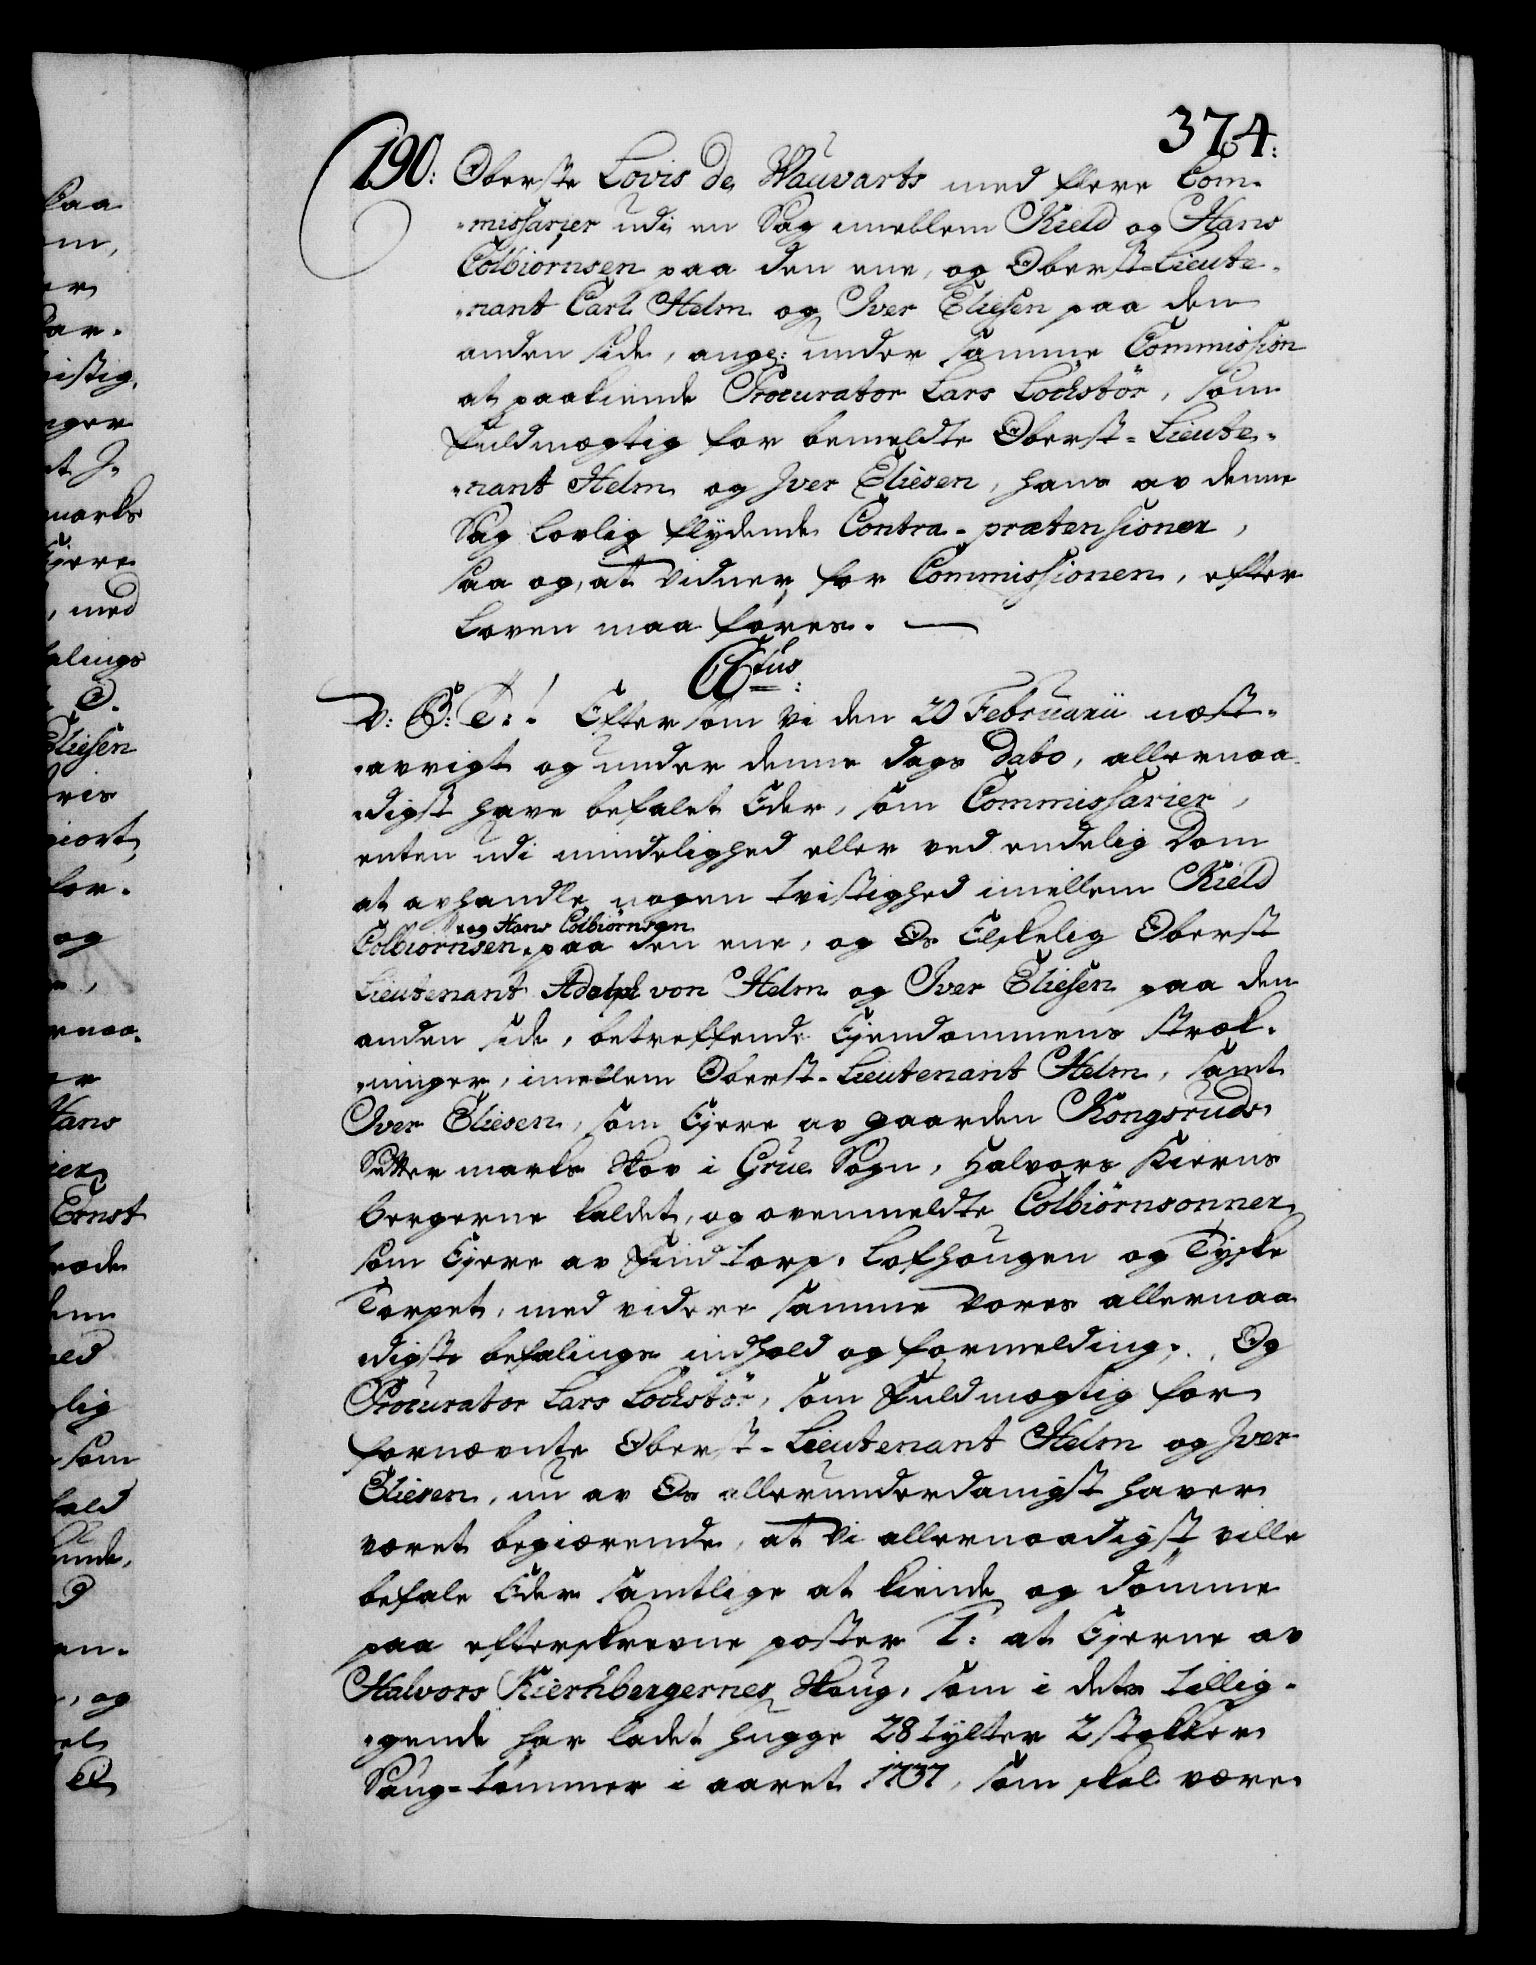 374.
190: Oberste Lovis de Wauvarts med flere Com-
missarier udi en Sag imellem Kield og Hans
Colbiørnsen paa den ene, og Oberst-Lieute-
nant Carl Helm og Iver Eliesen paa den
anden side, ang: under samme Commission
at paakiende Procurator Lars Lochstör, som
fuldmægtig for bemeldte Oberst-Lieute-
nant Helm og Iver Eliesen, hans av denne
Sag lovlig flydende Contra-prætensioner,
saa og, at Vidner for Commissionen, efter
Loven maa føres.
C6tus:
V: G: T:! Eftersom Vi den 20 Februarii næst-
avvigt og under denne dags Dato, allernaa-
digst have befalet Eder, som Commissarier,
enten udi mindelighed eller ved endelig Dom
at avhandle nogen tvistighed imellem Kield
og Hans Colbiørnsen
Colbiørnsen paa den ene, og Os Elskelig Oberst
Lieutenant Adolph von Helm og Iver Eliesen paa den
anden side, betreffende Ejendommens stræk-
ninger, imellem Oberst-Lieutenant Helm, samt
Iver Eliesen, som Ejere av gaarden Kongsruds
Sætter marks skov i Grue Sogn, Halvors Kierns
bergerne kaldet, og ovenmeldte Colbiørnsonner
som Ejere av Findtorp, Lofhougen og Tyske
Torpet, med videre samme Vores allernaa
digste befalings indhold og formelding. Og
Procurator Lars Lochstör, som fuldmægtig for
fornævnte Oberst-Lieutenant Helm og Iver
Eliesen, nu av Os allerunderdanigst haver
været begiærende, at Vi allernaadigst ville
befale Eder samtlige at kiende og dömme
paa efterskrevne poster 1: at Ejerne av
Halvors Kiernbergernes skoug, som i dets tillig-
gende har ladet hugge 28 tylter 2 stokker
Saug-tømmer i aaret 1737, som skal være